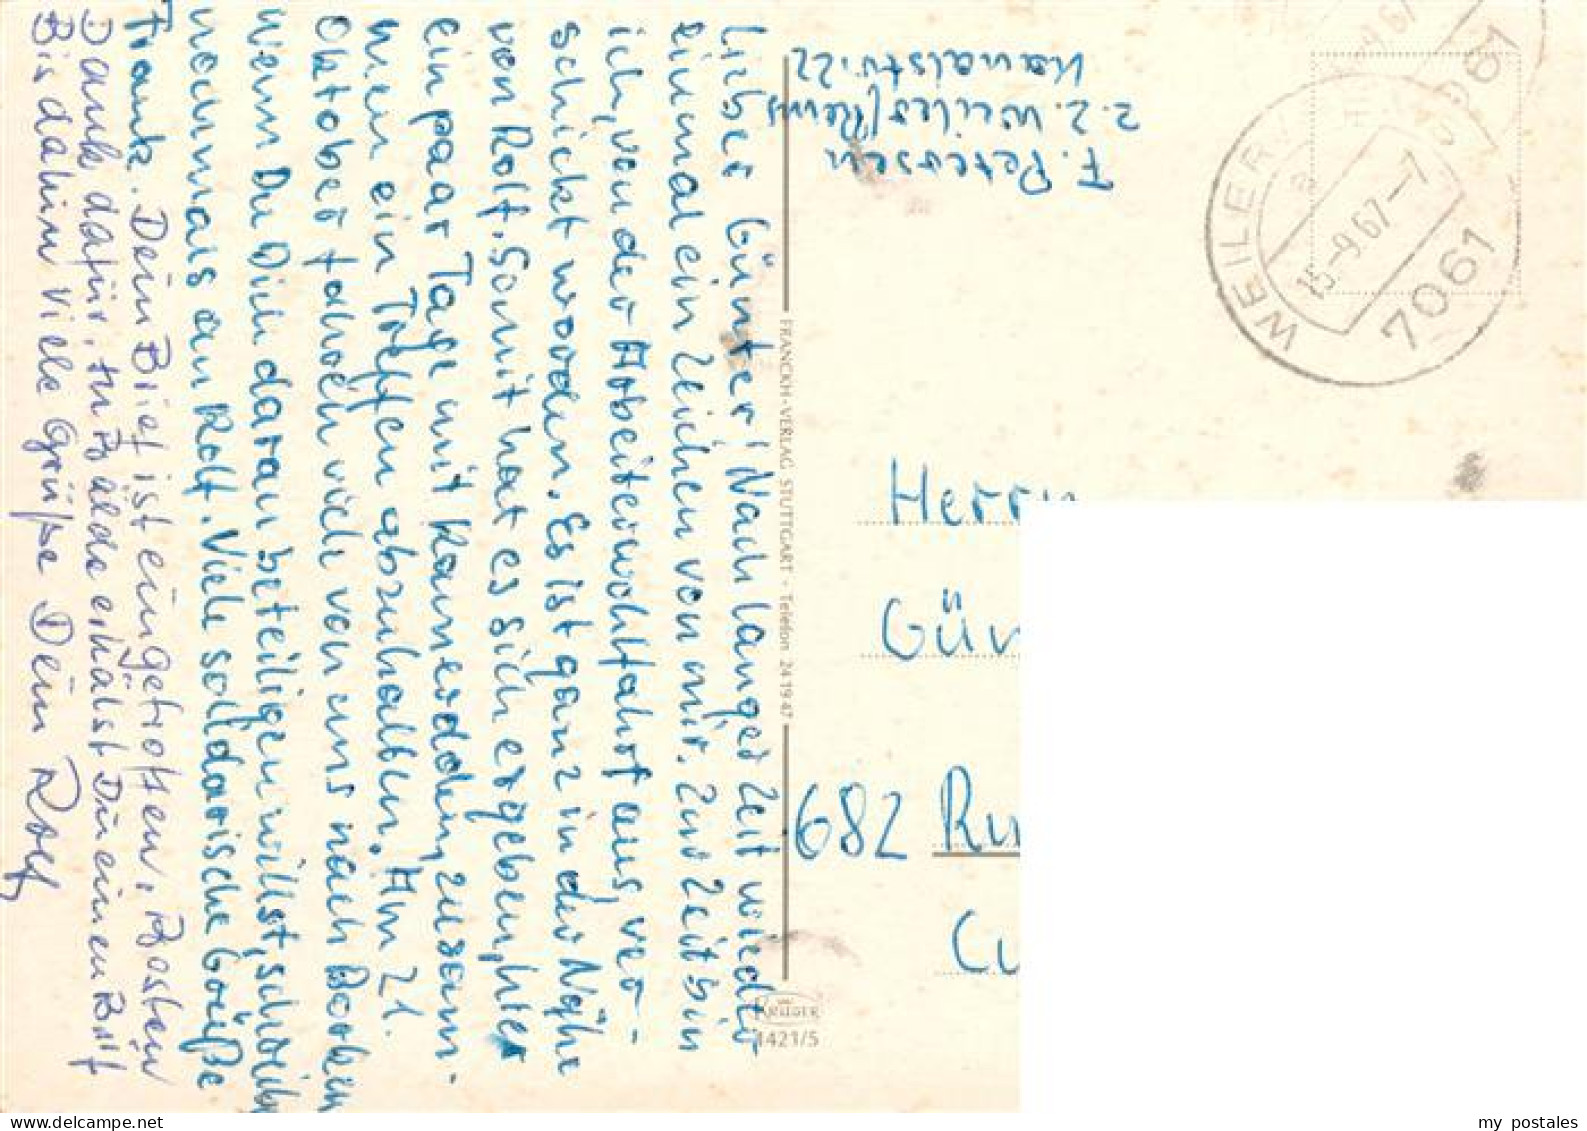 Lieber Günter! Nach langer Zeit wieder
einmal ein Zeichen von mir. Zur Zeit bin
ich, von der Arbeiterwohlfahrt aus, ver-
schickt worden. Es ist ganz in der Nähe
von Rolf. Somit hat es sich ergeben, hier
ein paar Tage mit Kameraden, zusam-
men ein Treffen abzuhalten. Am 21.
Oktober fahren viele von uns nach Borken
Wenn Du Dich daran beteiligen willst, schreibe
nochmals an Rolf. Viele solidarische Grüße
Frank. Dein Brief ist eingetroffen, Besten
Dank dafür, in Bälde erhälst Du einen Brief
Bis dahin viele Grüße Dein Rolf
F. Petersen
z. Z. Weiler/Rems
Kanalstr. 22
FRANCKH-VERLAG STUTTGART - Telefon 24 19 47
KRÜGER
1421/5
WEILER
15.-9.67.-7
7061
9.67
7061
Herrn
Gün
682 Ru
Cu
my postales